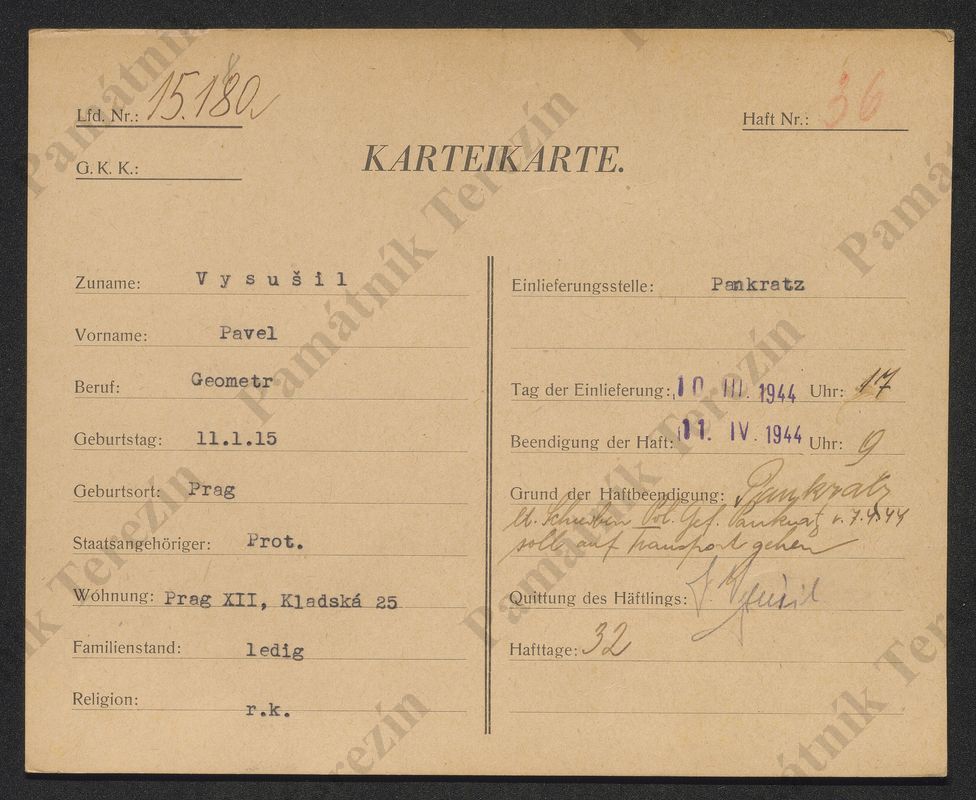 Lfd. Nr.: 15.180
Haft Nr.: 36
G. K. K.:
KARTEIKARTE.
Zuname: Vysušil
Vorname: Pavel
Beruf: Geometr
Geburtstag: 11.1.15
Geburtsort: Prag
Staatsangehöriger: Prot.
Wohnung: Prag XII, Kladská 25
Familienstand: ledig
Religion: r.k.
Einlieferungsstelle: Pankratz
Tag der Einlieferung: 10. III. 1944 Uhr: 17
Beendigung der Haft: 11. IV. 1944 Uhr: 9
Grund der Haftbeendigung: Pankratz
lt. Schreiben Pol. Gef. Pankratz v. 7.4.44
soll auf Transport gehen
Quittung des Häftlings: Vysušil
Hafttage: 32
Památník Terezín
Památník Terezín
Památník Terezín
Památník Terezín
Památník Terezín